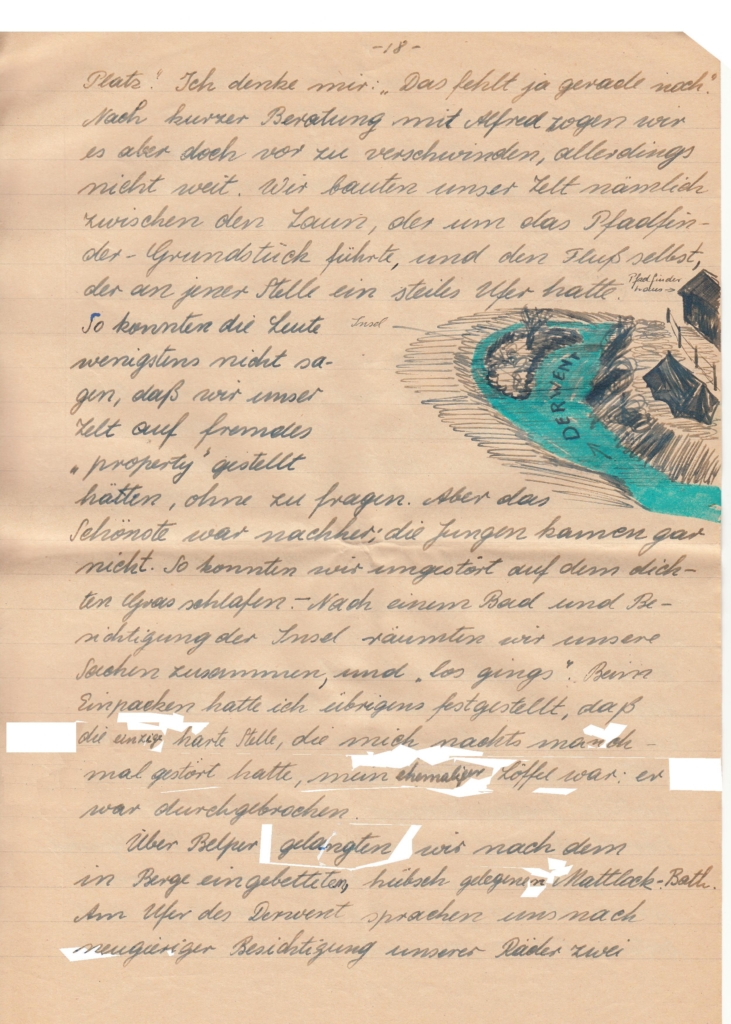 -18-
Platz." Ich denke mir: „Das fehlt ja gerade noch."
Nach kurzer Beratung mit Alfred zogen wir
es aber doch vor zu verschwinden, allerdings
nicht weit. Wir bauten unser Zelt nämlich
zwischen den Zaun, der um das Pfadfin-
der-Grundstück führte, und den Fluß selbst,
der an jener Stelle ein steiles Ufer hatte.
Pfadfinder
haus→
So konnten die Leute
Insel
wenigstens nicht sa-
gen, daß wir unser
DERWENT
Zelt auf fremdes
„property" gestellt
hätten, ohne zu fragen. Aber das
Schönste war nachher: die Jungen kamen gar
nicht. So konnten wir ungestört auf dem dich-
ten Gras schlafen. – Nach einem Bad und Be-
sichtigung der Insel räumten wir unsere
Sachen zusammen, und „los gings". Beim
Einpacken hatte ich übrigens festgestellt, daß
die einzige harte Stelle, die mich nachts manch-
mal gestört hatte, mein ehemaliger Löffel war: er
war durchgebrochen.
Über Belper gelangten wir nach dem
in Berge eingebetteten, hübsch gelegenen Mattlock-Bath.
Am Ufer des Derwent sprachen uns nach
neugieriger Besichtigung unserer Räder zwei